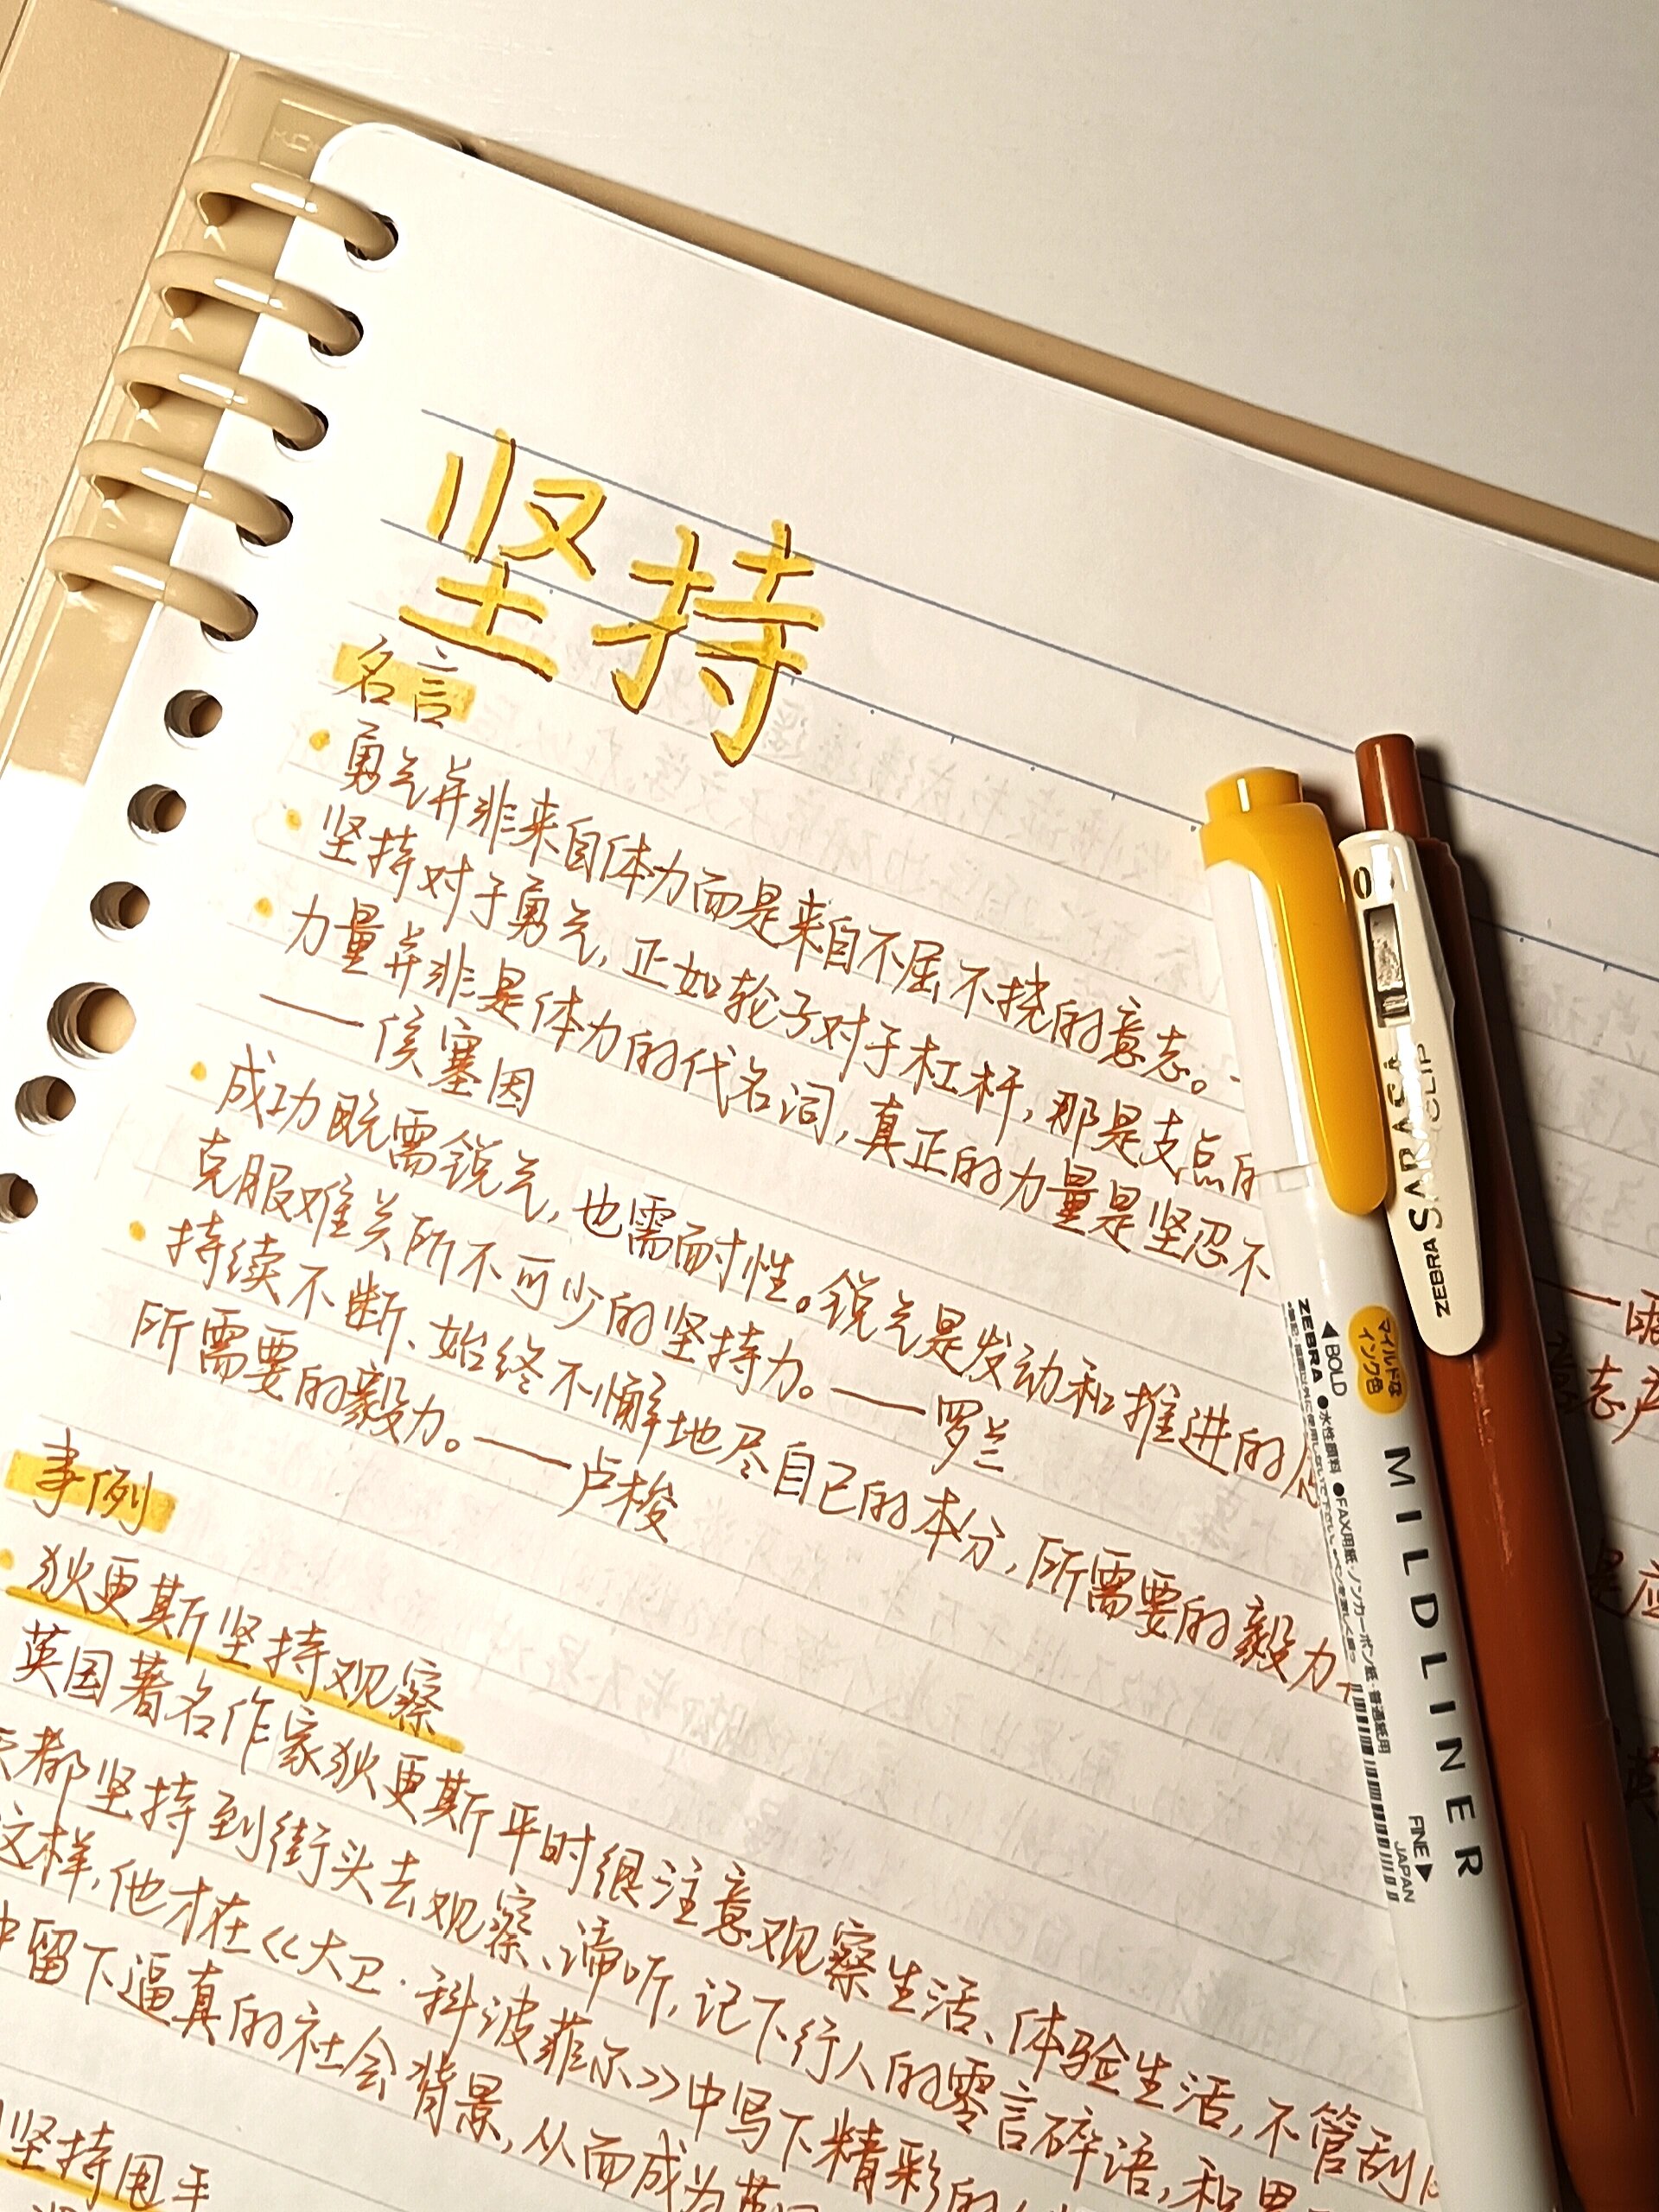 坚持
名言
勇气并非来自体力而是来自不屈不挠的意志。
坚持对于勇气,正如轮子对于杠杆,那是支点的
力量并非是体力的代名词,真正的力量是坚忍不
——侯塞因
成功既需锐气,也需耐性。锐气是发动和推进的
克服难关所不可少的坚持力。——罗兰
持续不断、始终不懈地尽自己的本分,所需要的毅力
所需要的毅力。——卢梭
事例
狄更斯坚持观察
英国著名作家狄更斯平时很注意观察生活、体验生活,不管刮
天都坚持到街头去观察、谛听,记下行人的零言碎语,积累
这样,他才在《大卫·科波菲尔》中写下精彩的
中留下逼真的社会背景,从而成为英国
坚持甩手
ZEBRA SARASA CLIP
マイルドな
インク色
◀BOLD
ZEBRA
●水性顔料 ●FAX用紙・ノンカーボン紙・普通紙用
MILDLINER
FINE▶
JAPAN
志